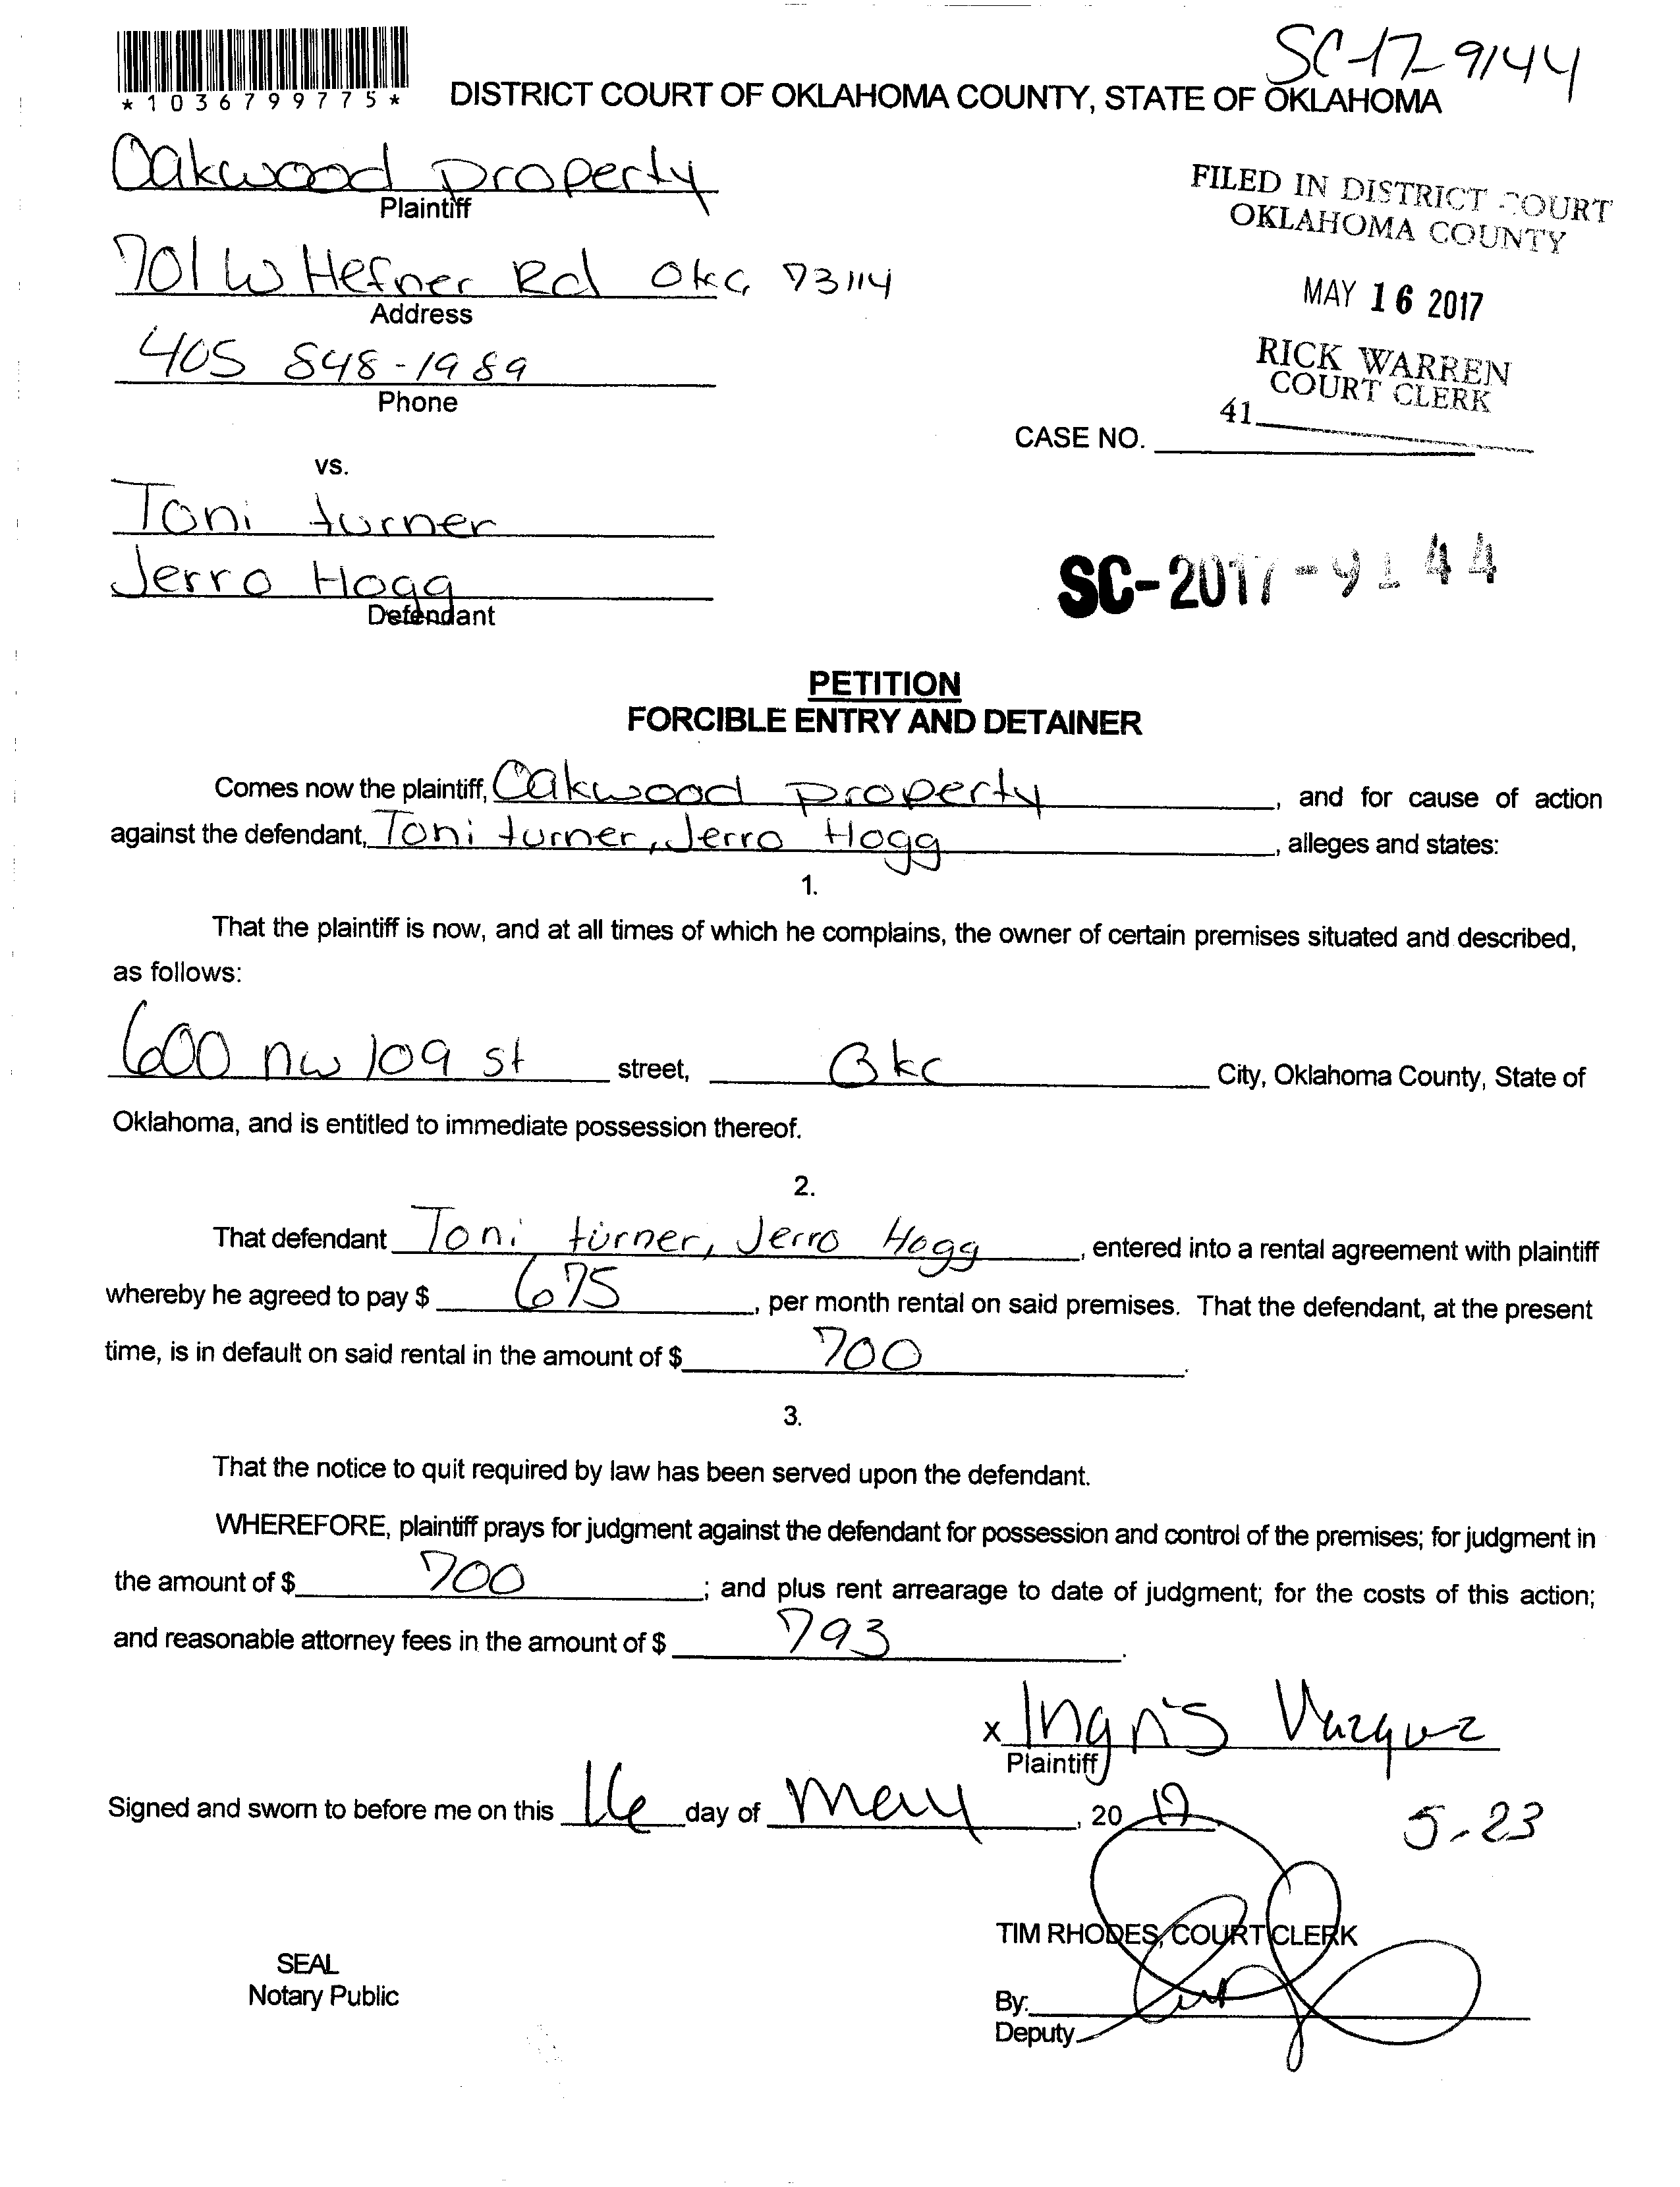 SC-17-9144
*1036799775*
DISTRICT COURT OF OKLAHOMA COUNTY, STATE OF OKLAHOMA
Oakwood property
Plaintiff
FILED IN DISTRICT COURT
OKLAHOMA COUNTY
701 W Hefner Rd Okc, 73114
Address
MAY 16 2017
405 848-1989
Phone
RICK WARREN
COURT CLERK
41
CASE NO.
vs.
Toni turner
Jerro Hogg
Defendant
SC-2017-9144
PETITION
FORCIBLE ENTRY AND DETAINER
Comes now the plaintiff, Oakwood property, and for cause of action
against the defendant, Toni turner, Jerro Hogg, alleges and states:
1.
That the plaintiff is now, and at all times of which he complains, the owner of certain premises situated and described,
as follows:
600 nw 109 st street, Okc City, Oklahoma County, State of
Oklahoma, and is entitled to immediate possession thereof.
2.
That defendant Toni turner, Jerro Hogg, entered into a rental agreement with plaintiff
whereby he agreed to pay $ 675, per month rental on said premises. That the defendant, at the present
time, is in default on said rental in the amount of $ 700.
3.
That the notice to quit required by law has been served upon the defendant.
WHEREFORE, plaintiff prays for judgment against the defendant for possession and control of the premises; for judgment in
the amount of $ 700; and plus rent arrearage to date of judgment; for the costs of this action;
and reasonable attorney fees in the amount of $ 793.
x Ingris Vazquez
Plaintiff
Signed and sworn to before me on this 16 day of May, 20 17
5-23
TIM RHODES, COURT CLERK
SEAL
Notary Public
By:
Deputy